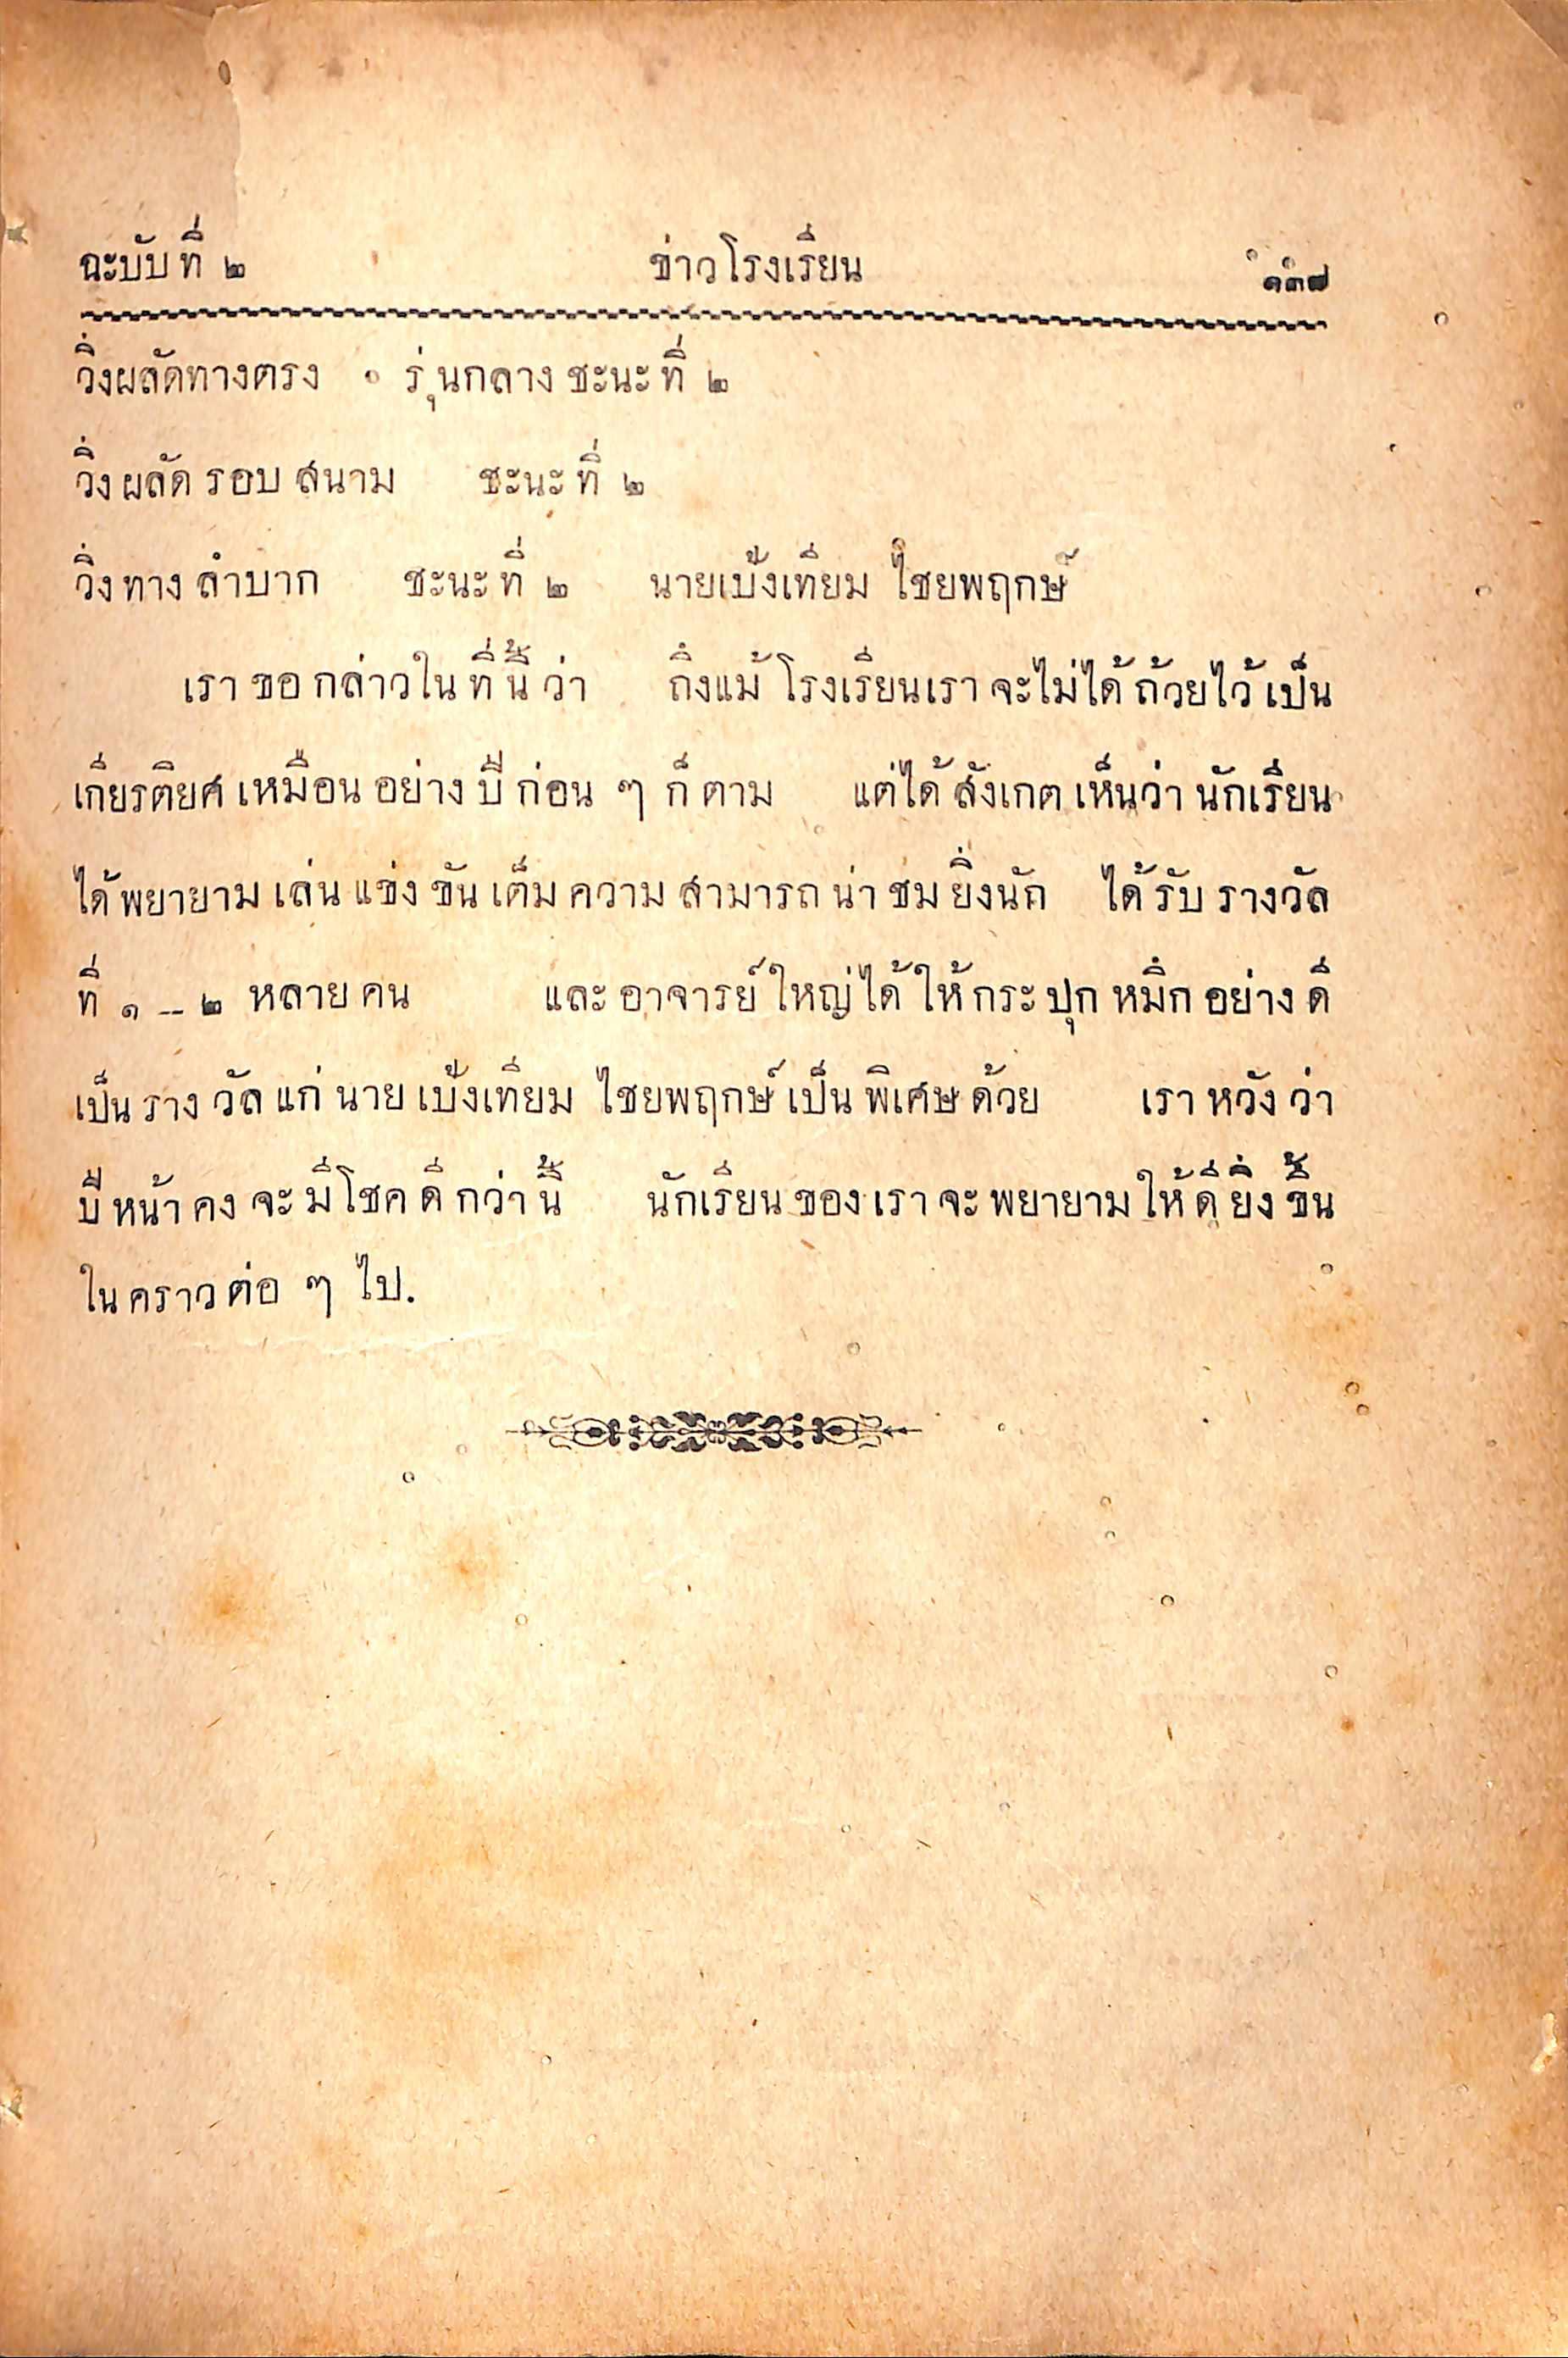 ฉะบับที่ ๒ ข่าวโรงเรียน ๑๓๗
วิ่งผลัดทางตรง รุ่นกลาง ชะนะที่ ๒
วิ่งผลัดรอบสนาม ชะนะที่ ๒
วิ่งทางลำบาก ชะนะที่ ๒ นายเบ้งเทียม ไชยพฤกษ์
เราขอกล่าวในที่นี้ว่า ถึงแม้โรงเรียนเราจะไม่ได้ถ้วยไว้เป็น
เกียรติยศเหมือนอย่างปีก่อน ๆ ก็ตาม แต่ได้สังเกตเห็นว่านักเรียน
ได้พยายามเล่นแข่งขันเต็มความสามารถน่าชมยิ่งนัก ได้รับรางวัล
ที่ ๑ — ๒ หลายคน และอาจารย์ใหญ่ได้ให้กระปุกหมึกอย่างดี
เป็นรางวัลแก่นายเบ้งเทียม ไชยพฤกษ์เป็นพิเศษด้วย เราหวังว่า
ปีหน้าคงจะมีโชคดีกว่านี้ นักเรียนของเราจะพยายามให้ดียิ่งขึ้น
ในคราวต่อ ๆ ไป.